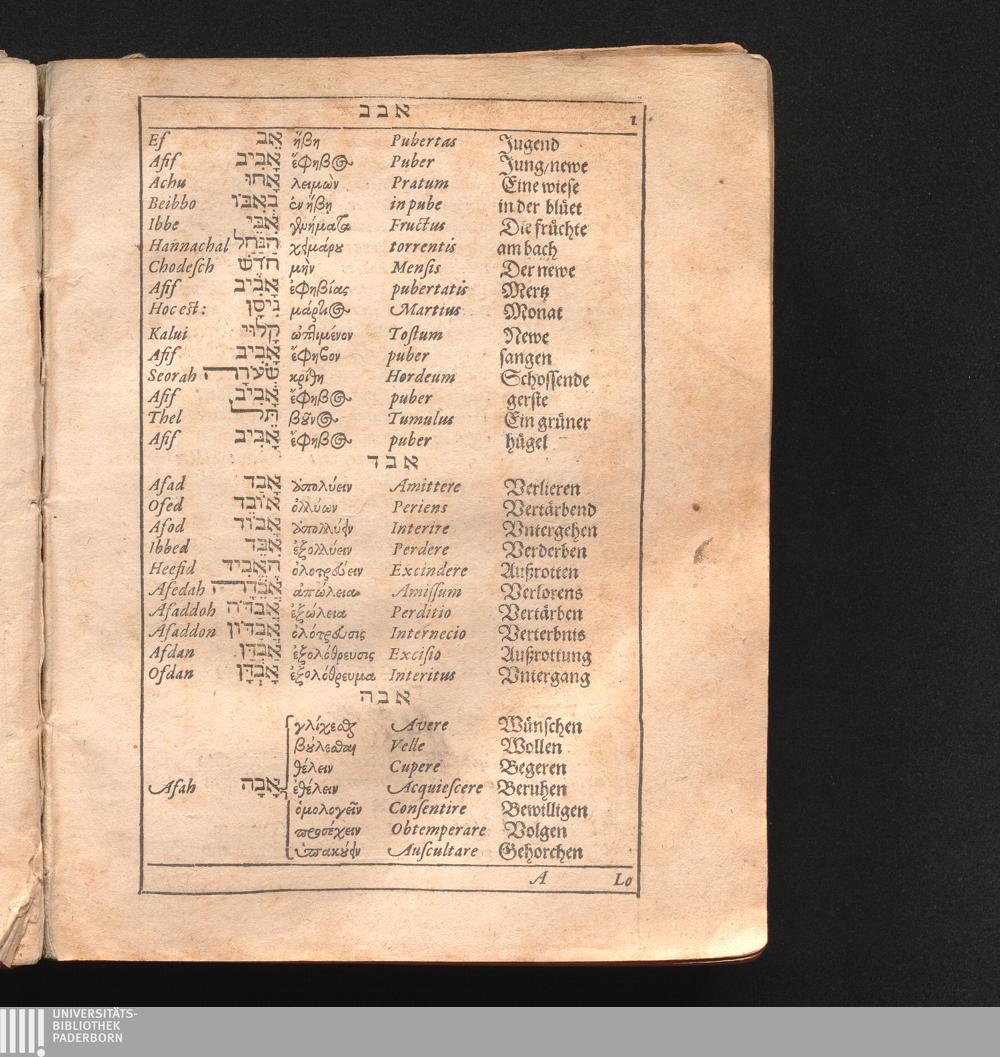 אבב
1
Ef אֵב ἥβη Pubertas Jugend
Afif אָבִיב ἔφηβος Puber Jung/newe
Achu אָחוּ λειμὼν Pratum Eine wiese
Beibbo בְאִבּוֹ ἐν ἥβῃ in pube in der blüet
Ibbe אִבֵּי Fructus Die früchte
Hannachal הַנַּחַל χειμάρου torrentis am bach
Chodesch חֹדֶשׁ μὴν Mensis Der newe
Afif אָבִיב ἐφηβίας pubertatis Mertz
Hoc est: נִיסָן μάρτιος Martius Monat
Kalui קָלוּי ὠπτημένον Tostum Newe
Afif אָבִיב ἔφηβον puber sangen
Seorah שְׂעֹרָה κρίθη Hordeum Schossende
Afif אָבִיב ἔφηβος puber gerste
Thel תֵּל βουνὸς Tumulus Ein grüner
Afif אָבִיב ἔφηβος puber hügel
אבד
Afad אָבַד ἀπολύειν Amittere Verlieren
Ofed אוֹבֵד ὀλλύων Periens Vertärbend
Afod אָבוֹד Interire Vntergehen
Ibbed אִבֵּד ἐξολλύειν Perdere Verderben
Heefid הֶאֱבִיד ὀλοτρεύειν Excindere Außrotten
Afedah אֲבֵדָה ἀπώλεια Amissum Verlorens
Afaddoh אֲבַדֹּה ἐξώλεια Perditio Vertärben
Afaddon אֲבַדּוֹן ὀλότρευσις Internecio Verterbnis
Afdan אַבְדָן ἐξολόθρευσις Excisio Außrottung
Ofdan אָבְדָן ἐξολόθρευμα Interitus Vntergang
אבה
γλίχεσθαι Avere Wünschen
βούλεσθαι Velle Wollen
θέλειν Cupere Begeren
Afah אָבָה ἐθέλειν Acquiescere Beruhen
ὁμολογεῖν Consentire Bewilligen
προσέχειν Obtemperare Volgen
ὑπακούειν Auscultare Gehorchen
A Lo
UNIVERSITÄTS-
BIBLIOTHEK
PADERBORN